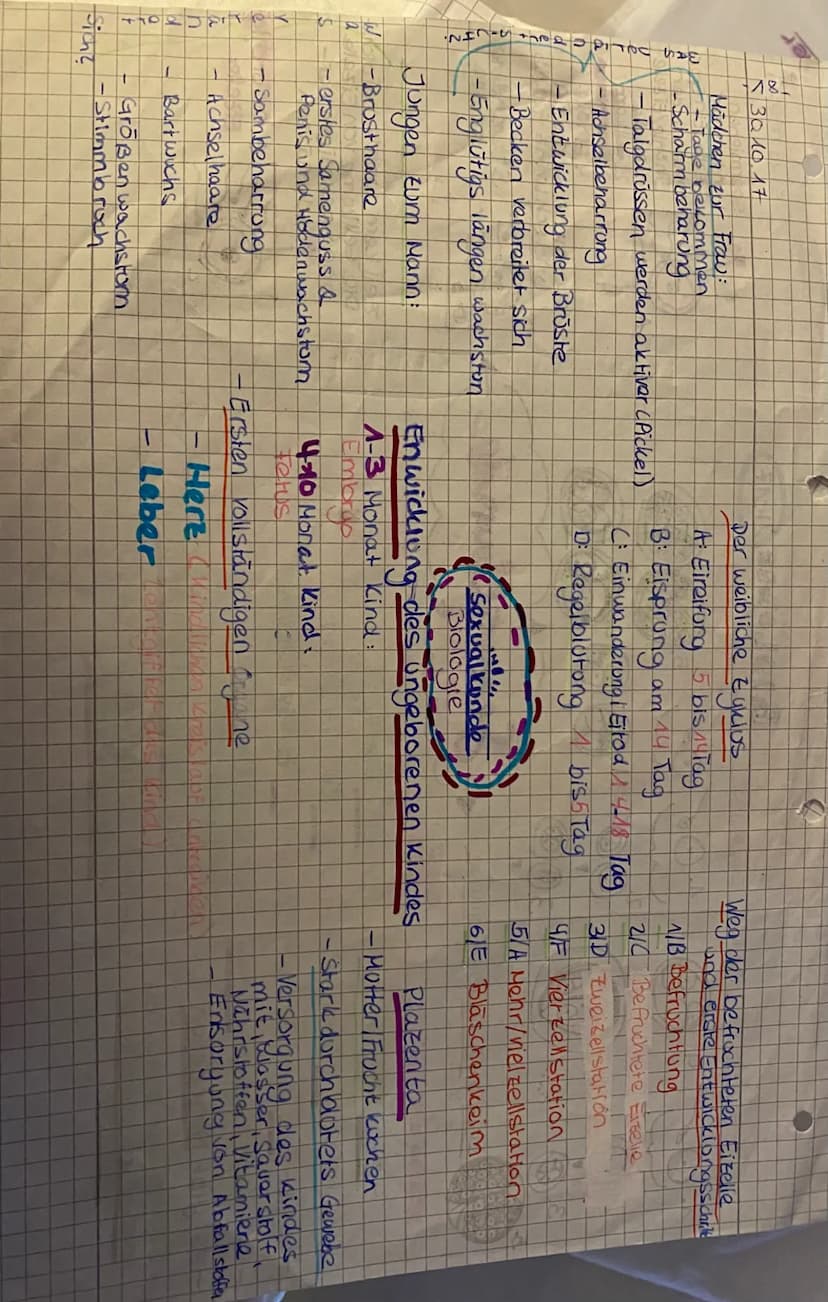 30.10.17
Mädchen zur Frau:
- Tage bekommen
- Schambeharung
- Talgdrüssen werden aktiver (Pickel)
- Achselbeharrung
- Entwicklung der Brüste
- Becken verbreitet sich
- Englütigs längen wachstum
Was
verändert
sich?
Jungen zum Mann:
- Brusthaare
- erstes Samenguss &
Penis und Hodenwachstum
- Sambeharrung
- Achselhaare
- Bartwuchs
- Größenwachstum
- Stimmbruch
Was
verändert
sich?
Der weibliche Zyklus
A: Eireifung 5 bis 14 Tag
B: Eisprung am 14 Tag
C: Einwanderung/Eitod 14-18 Tag
D: Regelblutung 1 bis 5 Tag
Sexualkunde
Biologie
Weg der befruchteten Eizelle
und erste Entwicklungsschritte
1/B Befruchtung
2/C Befruchtete Eizelle
3/D Zweizellstation
4/F Vierzellstation
5/A Mehr/vielzellstation
6/E Bläschenkeim
Enwicklung des ungeborenen Kindes
1-3 Monat Kind:
Embryo
4-10 Monat Kind:
Fetus
- Ersten vollständigen Organe
- Herz
- Leber
Plazenta
- Mutter/Frucht kuchen
- Stark durchblutets Gewebe
- Versorgung des Kindes
mit Wasser, Sauerstoff,
Nährstoffen, Vitamiene
- Entsorgung von Abfallstoffen